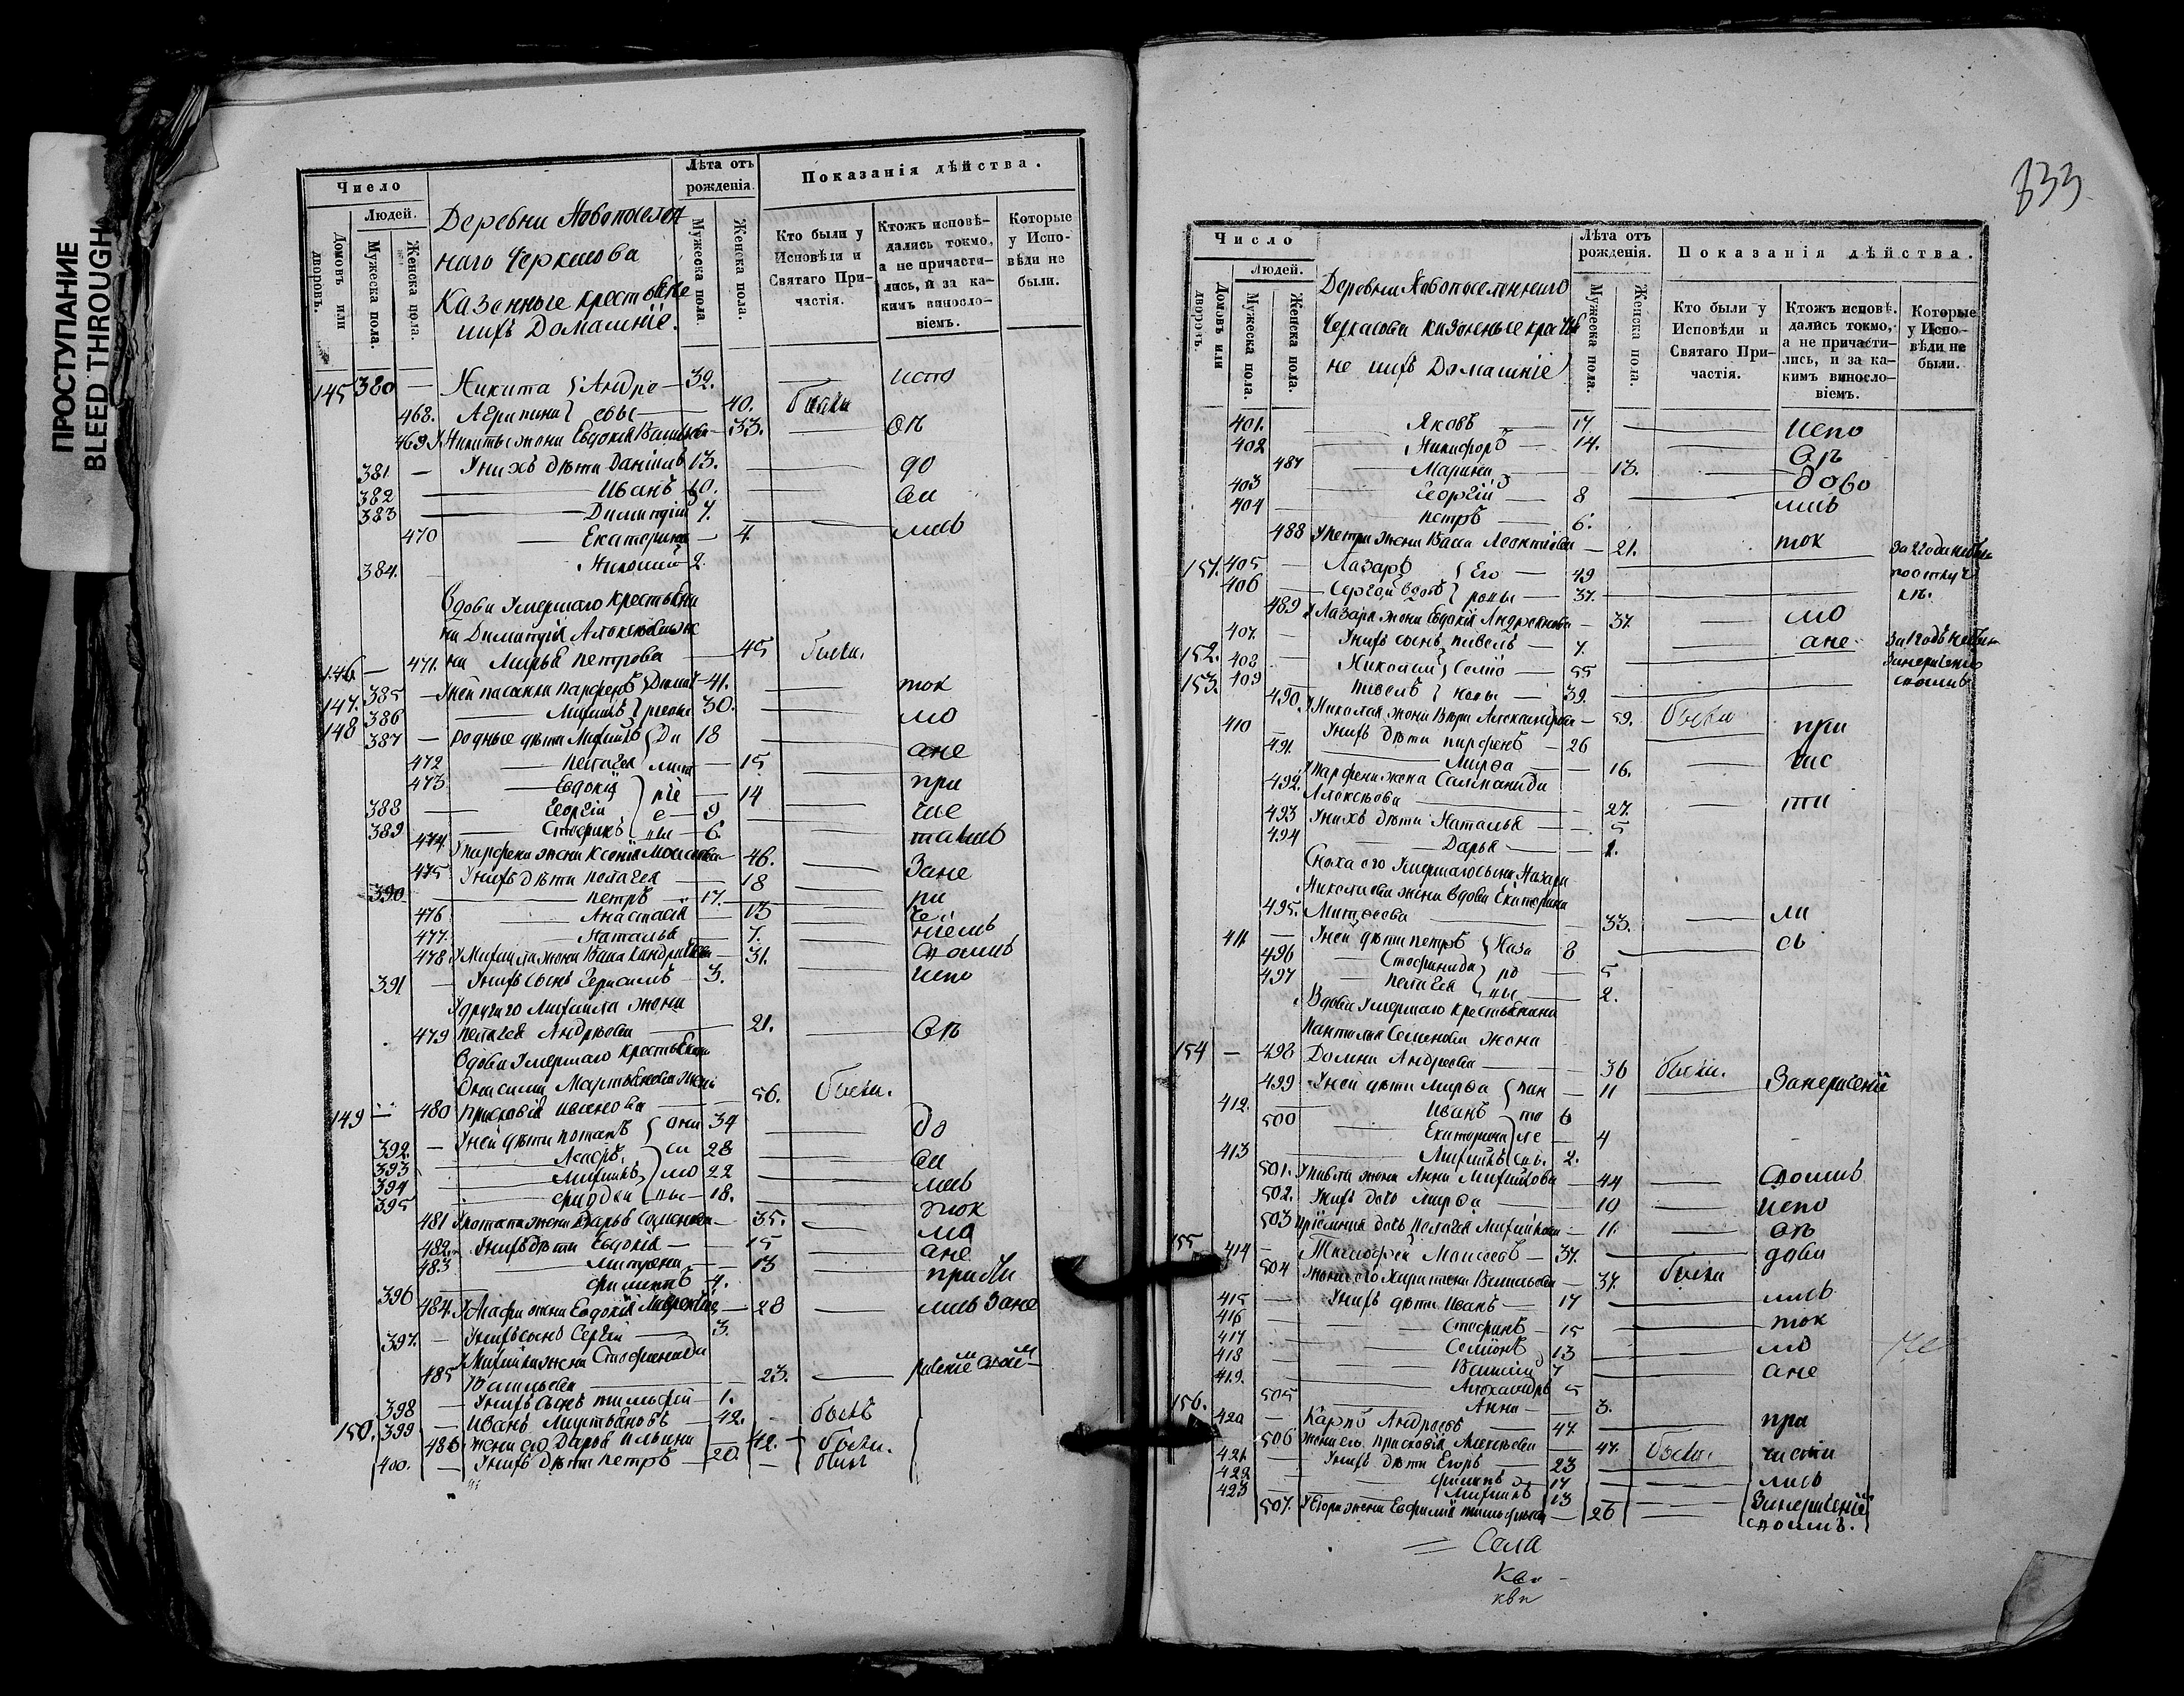 ПРОСТУПАНИЕ
BLEED THROUGH
Число
Людей.
Домовъ или дворовъ.
Мужеска пола.
Женска пола.
Деревни Новопоселен
наго Черкасова
Казенные крестьяне
ихъ Домашніе.
Лѣта отъ рожденія.
Мужеска пола.
Женска пола.
Показанія дѣйства.
Кто были у Исповѣди и Святаго Причастія.
Ктожъ исповѣдались токмо, а не причастились, и за какимъ винословіемъ.
Которые у Исповѣди не были.
145 380 — Никита } Андре — 32. — испо
468. Агрипина } евы — 40. были
469 У Никиты жена Евдокія Васильева — 33. — вѣ
381 — У нихъ дѣти Даніилъ 13. — до
382 — Иванъ 10. — ва
383 — Димитрій 7. — лись
470 — Екатерина — 4.
384. Николай 2.
Вдова Умершаго Крестьяни
на Димитрія Алексѣева же
146 — 471. на Марья Петрова — 45 были.
147. 385 — У ней пасынки Парфенъ } Димит 41. — ток
148 386 — Михаилъ } ріевы 30. — мо
387 — родные дѣти Михаилъ } Ди 18 — ане
472 — Пелагея } мит — 15 — при
473 — Евдокія } ріе — 14 — час
388 — Георгій } е — 9 — тились
389 — Стефанъ } вы — 6.
474. У Парфена жена Ксенія Моисеева — 46. — Зане
475 У нихъ дѣти Пелагея — 18 — ра
390 — Петръ — 17. —
476 — Анастасія — 13 —
477. — Наталья — 7. — ніемъ
478 У Михаила жена Васса Кондратьева — 31. — Споимъ
391 — У нихъ сынъ Герасимъ — 3. — испо
У другаго Михаила жена
479 Пелагея Андреева — 21. — вѣ
Вдова Умершаго Крестьянина
Онисима Мартынова жена
149 — 480 Прасковія Иванова — 56. были.
392. — У ней дѣти Потапъ } Они 34 — до
393 — Агафъ } си 28 — ва
394 — Михаилъ } мо 22 — лись
395 — } вы — 18. — ток
481 У Потапа жена Дарья Семенова — 35. — мо
482. У нихъ дѣти Евдокія — 15 — ане
483 — Матрена — 13 — прича
396 — Филиппъ 4.
484. У Агафа жена Евдокія Лаврентьева — 28 — лись Зане
397. — У нихъ сынъ Сергій — 3.
У Михаила жена Стефанида
485 Васильева — 23. —
398 — У нихъ сынъ Тимофей — 1.
150. 399 — Иванъ Мартыновъ — 42. — былъ
486 жена его Дарья Ильина — 42. — были.
400. — У нихъ дѣти Петръ — 20. — былъ
833
Число
Людей.
Домовъ или дворовъ.
Мужеска пола.
Женска пола.
Деревни Новопоселеннаго
Черкасова казенные крестья
не ихъ Домашніе
Лѣта отъ рожденія.
Мужеска пола.
Женска пола.
Показанія дѣйства.
Кто были у Исповѣди и Святаго Причастія.
Ктожъ исповѣдались токмо, а не причастились, и за какимъ винословіемъ.
Которые у Исповѣди не были.
401. — Яковъ — 17. — испо
402 — Никифоръ — 14. — вѣ
487 — Марина — 13. — дова
403 — Георгій — 8 — лись
404 — Петръ — 6.
488 У Петра жена Васса Леонтіева — 21. ток
151. 405 — Лазарь } Его — 49 —
406 — Сергей вдовъ } ровы — 37. —
489 У Лазаря жена Евдокія Андреянова — 37. — мо
407. У нихъ сынъ Павелъ — 7. — ане
152. 408 — Николай } Семіо — 55 —
153. 409 — Павелъ } новы — 39. —
490. У Николая жена Вѣра Александрова — 59. были — при
410 — У нихъ дѣти Парфенъ — 26 —
491. — Марѳа — 16. — час
492. У Парфена жена Саломанида
Алексѣева — 27. — ти
493 У нихъ дѣти Наталья — 5
494 — Дарья — 1.
Сноха его Умершаго сына Назара
Николаева жена вдова Екатерина
495. Матвеева — 33. — ли
411. — У ней дѣти Петръ } Наза 8 — сь
496 — Стефанида } ро — 5
497 — Пелагея } вы — 2.
Вдова Умершаго крестьянина
Пантелея Семенова жена
154 — 498 Домна Андреева — 36 были.
499 У ней дѣти Марѳа } пан — 11 —
412. — Иванъ } те 6
500 — Екатерина } ле — 4
413 — Михаилъ } евы. 2.
501. У Павла жена Анна Михайлова — 44 — Споимъ
502. У нихъ дочь Марѳа — 10 — испо
503 пріемная дочь Пелагея Михайлова — 11. — вѣ
155 414 — Тимофей Моисеевъ — 37. — дова
504 Жена его Харитина Васильева — 37. были
415 — У нихъ дѣти Иванъ — 17 — лись
416 — Стефанъ — 15 — ток
417 — Семіонъ — 13 — мо
418 — Василій 7 — ане
419. — Александръ 5
505 — Анна — 3.
156. 420 — Карпъ Андреевъ — 47. — при
506 Жена его Прасковія Алексѣева — 47. были. части
421. — У нихъ дѣти Егоръ — 23 — лись
422 — Филиппъ — 17 —
423 — Михаилъ 13 —
507. У Егора жена Евфимія Тимофеева — 26 — споимъ.
Села